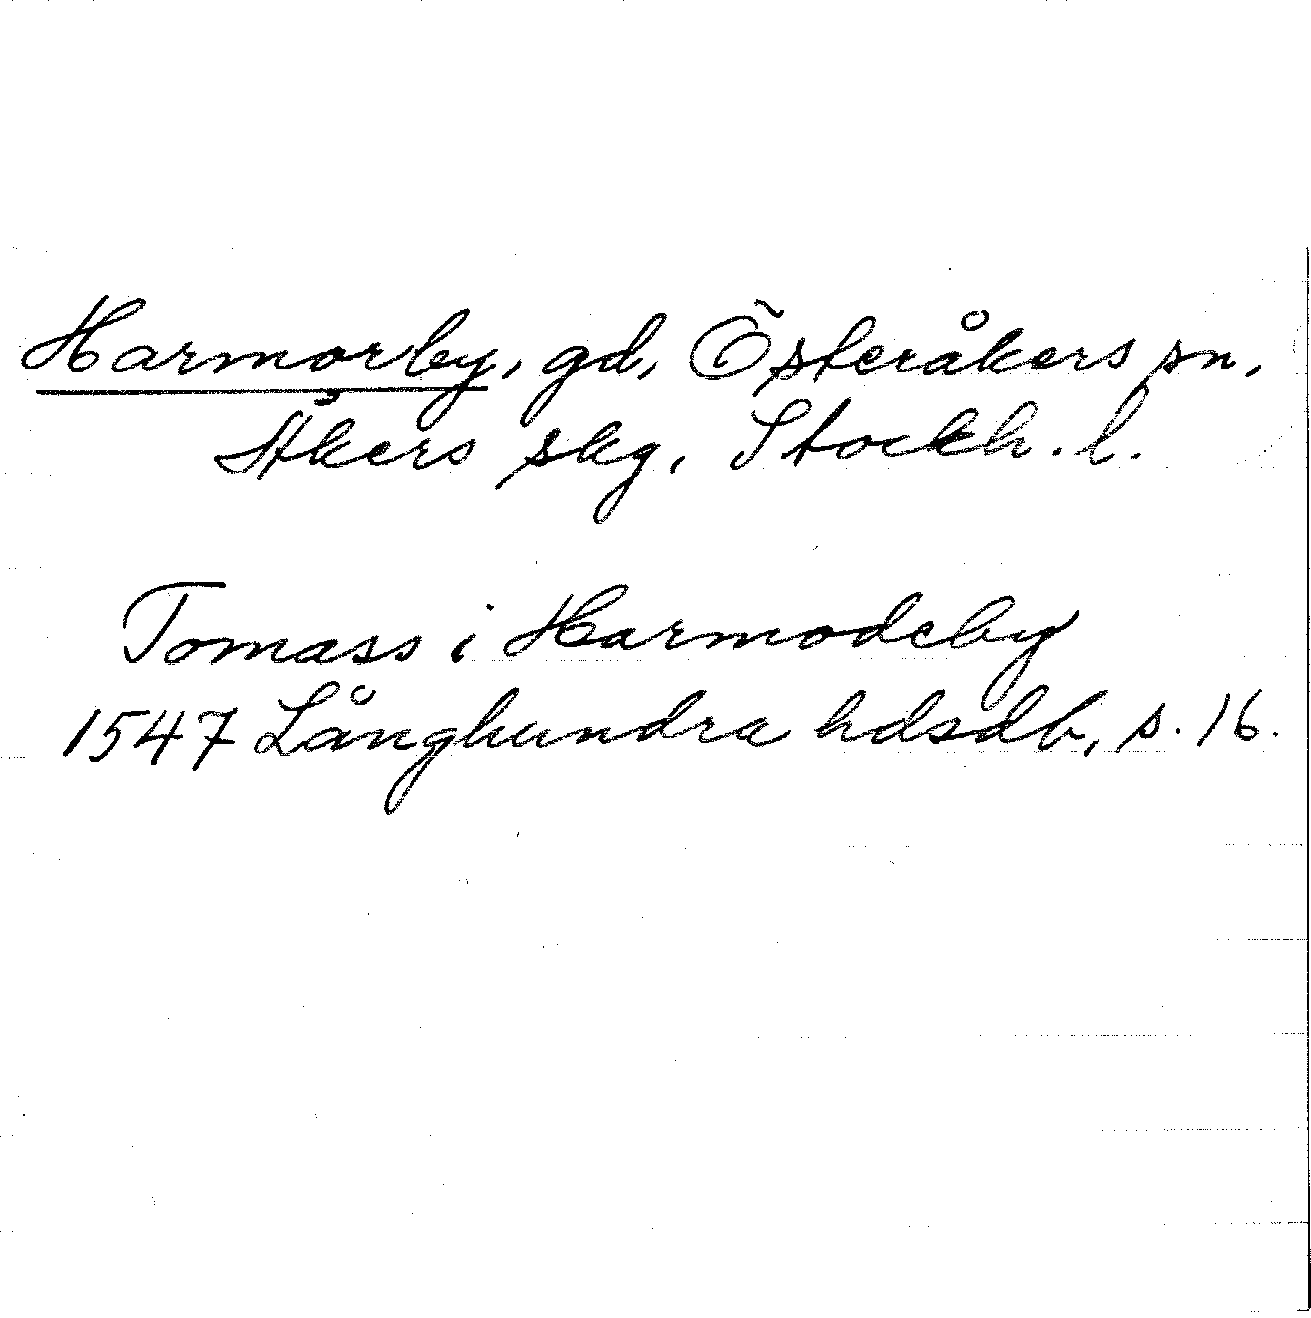 Harmorby, gd, Österåkers sn,
Åkers skg, Stockh. l.
Tomass i Harmodeby
1547 Långhundra hdsdb, s. 16.